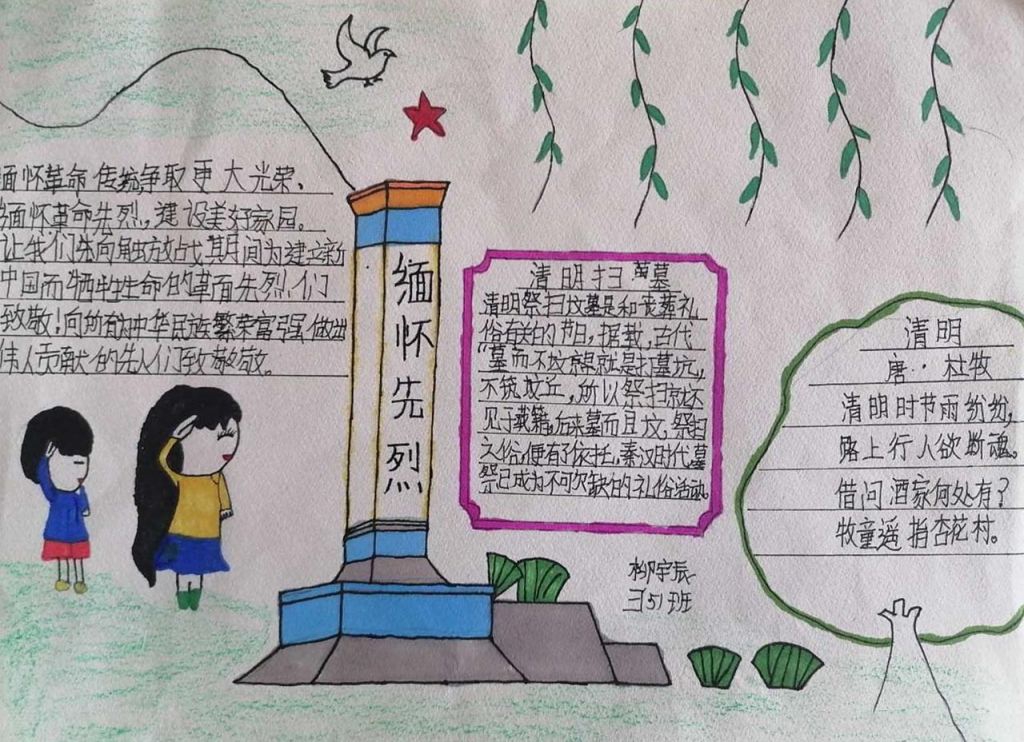 缅怀革命传统争取更大光荣、
缅怀革命先烈，建设美好家园。
让我们先向解放战其月间为建立新
中国而牺牲生命的革面先烈们
致敬！向所有为中华民族繁荣富强做出
伟人贡献的先人们致敬敬。
缅怀先烈
清明扫墓
清明祭扫坟墓是和丧葬礼
俗有关的节日，据载，古代
“墓而不坟”就是打墓坑，
不筑坟丘，所以祭扫就还
见于载籍。后来墓而且坟，祭扫
之俗，便有了依托，秦汉时代墓
祭已成为不可欠缺的礼俗活动。
清明
唐·杜牧
清明时节雨纷纷，
路上行人欲断魂。
借问酒家何处有？
牧童遥指杏花村。
柳宇辰
351班